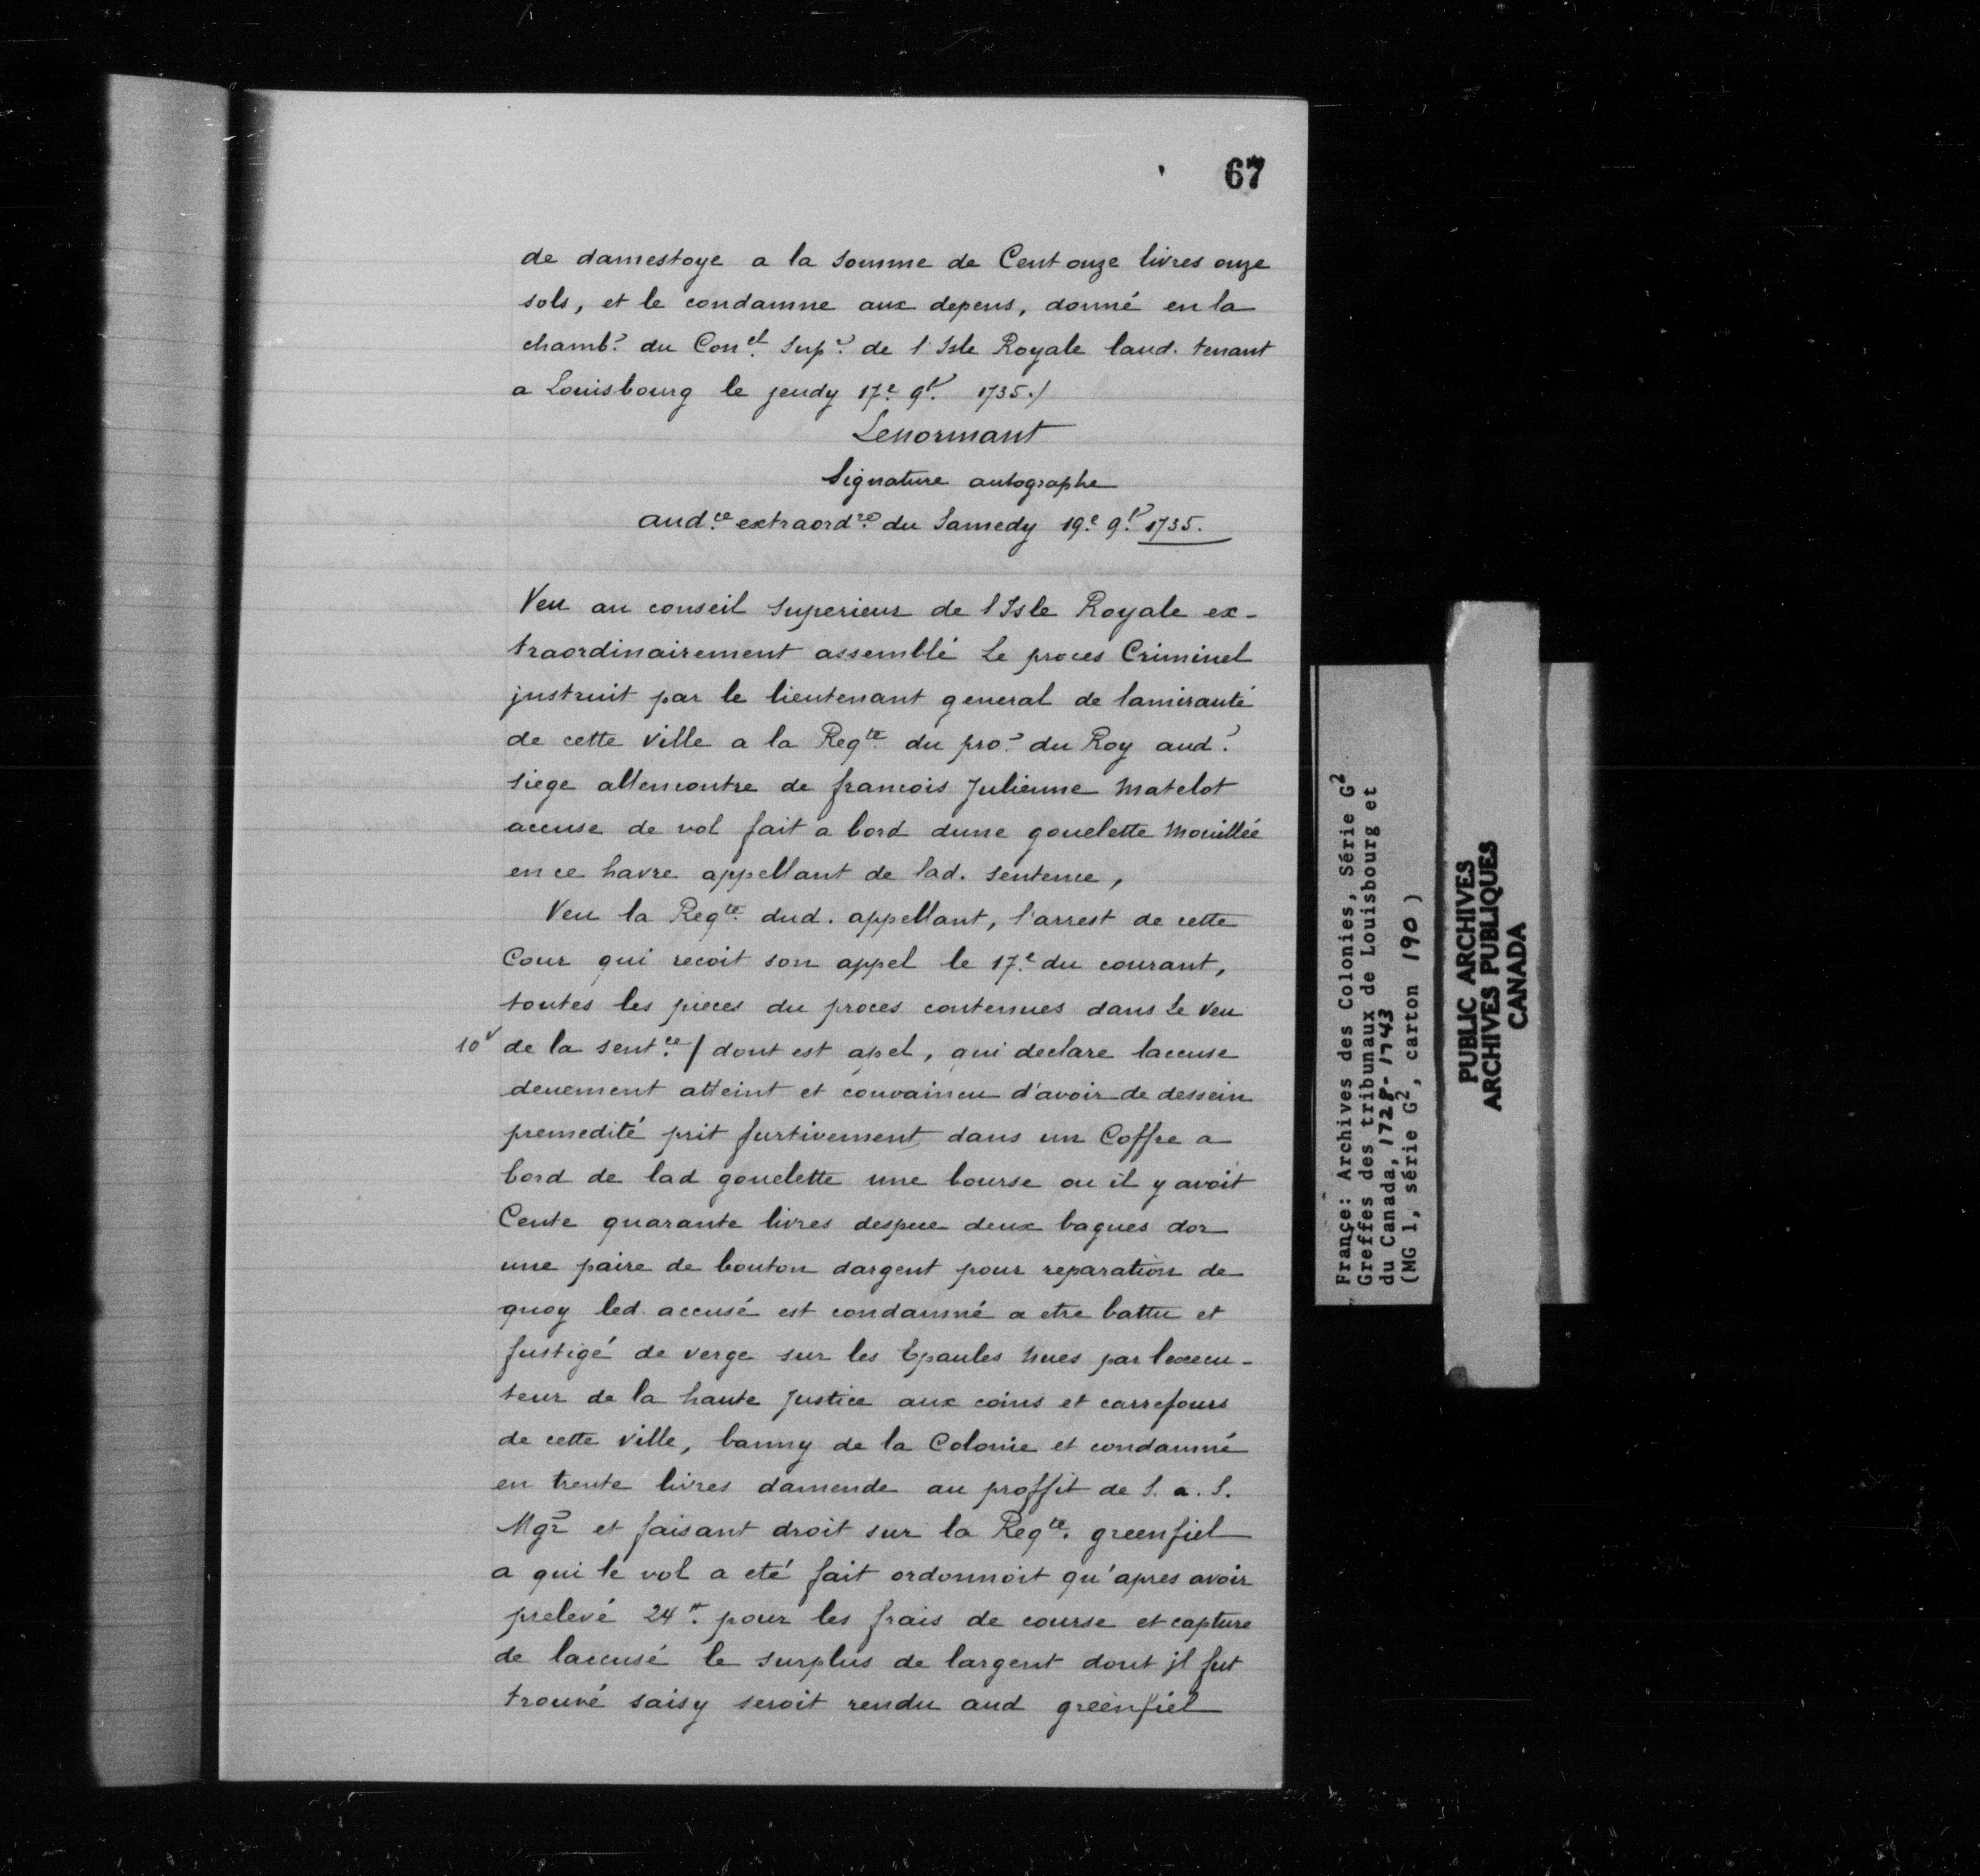 67
de damestoye a la somme de Cent onze livres onze
sols, et le condamne aux depens, donné en la
chamb.e du Con.el Sup.r de l'Isle Royale laud. tenant
a Louisbourg le jeudy 17.e 9.br 1735./
Lenormant
Signature autographe
aud.ce extraord.re du Samedy 19.e 9.br 1735.
Veu au conseil superieur de l'Isle Royale ex-
traordinairement assemblé Le proces Criminel
justruit par le lieutenant general de lamirauté
de cette Ville a la Reqte. du pro.r du Roy aud.
siege allencontre de francois Julienne Matelot
accuse de vol fait a bord dune gouelette Mouillée
en ce havre appellant de lad. sentence,
Veu la Reqte. dud. appellant, l'arrest de cette
Cour qui recoit son appel le 17.e du courant,
toutes les pieces du proces contenues dans Le Veu
10v de la sent.ce / dont est apel, qui declare laccuse
deuement atteint et convaincu d'avoir de dessein
premedité prit furtivement dans un Coffre a
bord de lad gouelette une bourse ou il y avoit
Cente quarante livres despece deux bagues dor
une paire de bouton dargent pour reparation de
quoy led. accusé est condamné a etre battu et
fustigé de verge sur les Epaules Nues par lexecu-
teur de la haute Justice aux coins et carrefours
de cette Ville, banny de la Colonie et condamné
en trente livres damende au proffit de S. a. S.
Mgr et faisant droit sur la Reqte. greenfiel
a qui le vol a eté fait ordonnoit qu'apres avoir
prelevé 24tt. pour les frais de course et capture
de laccusé le surplus de largent dont jl fut
trouvé saisy seroit rendu aud greenfiel
France: Archives des Colonies, Série G2
Greffes des tribunaux de Louisbourg et
du Canada, 1728-1743
(MG 1, série G2, carton 190 )
PUBLIC ARCHIVES
ARCHIVES PUBLIQUES
CANADA